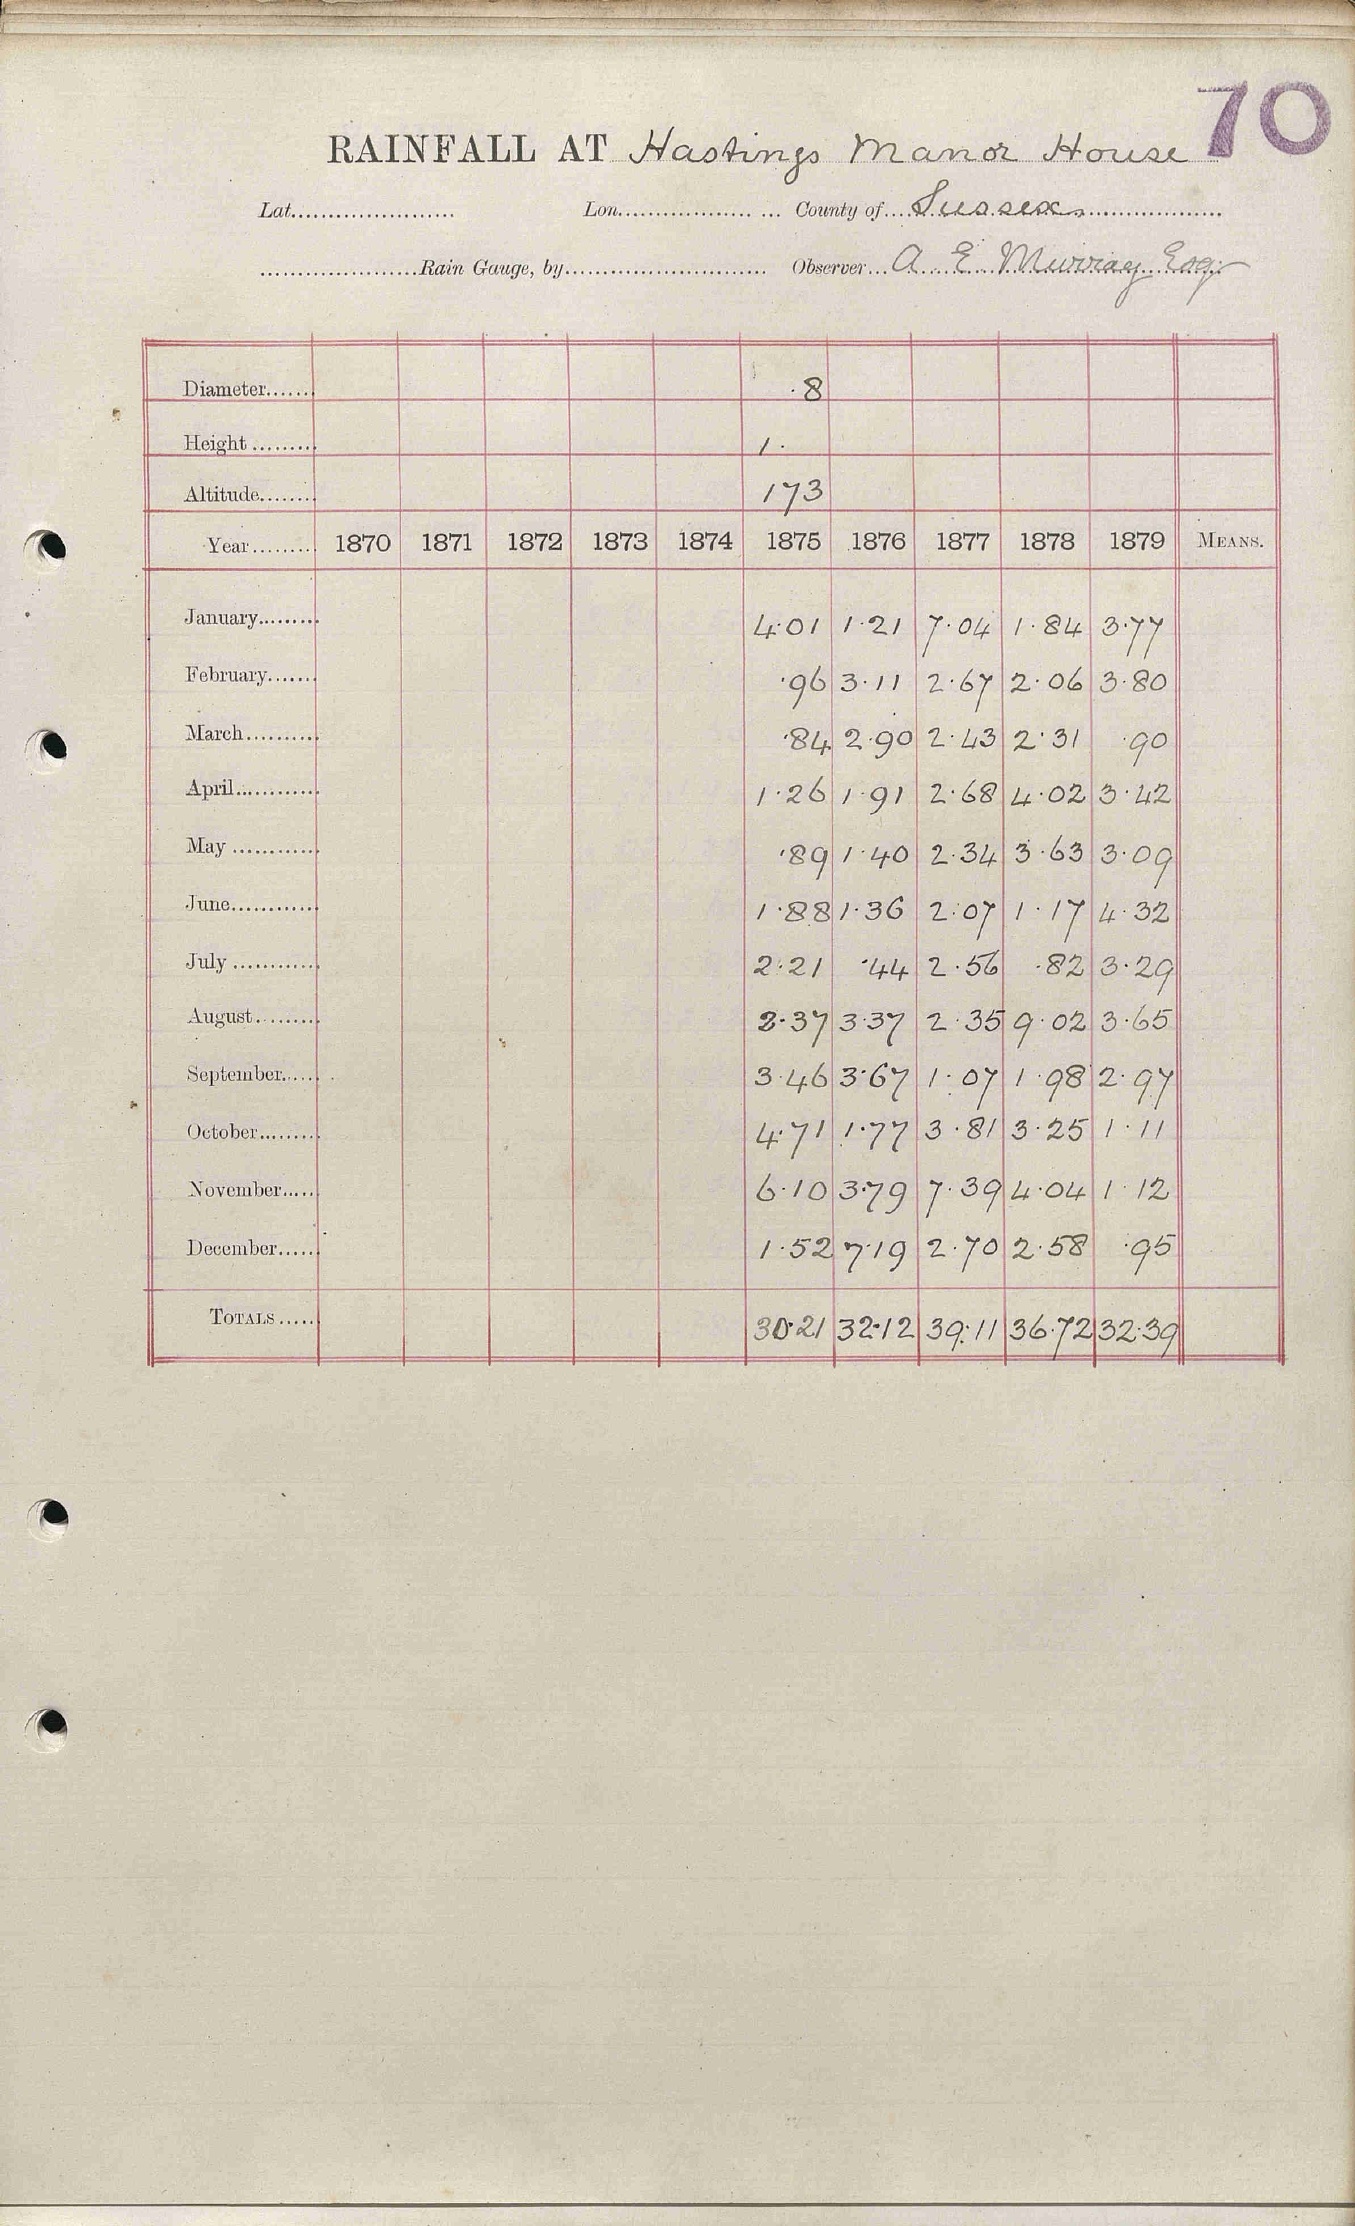 70
RAINFALL AT Hastings Manor House
Lat. Lon. County of Sussex.
Rain Gauge, by Observer A E Murray Esq
Diameter ·8
Height 1·
Altitude 173
Year 1870 1871 1872 1873 1874 1875 1876 1877 1878 1879 MEANS.
January 4·01 1·21 7·04 1·84 3·77
February ·96 3·11 2·67 2·06 3·80
March ·84 2·90 2·43 2·31 ·90
April 1·26 1·91 2·68 4·02 3·42
May ·89 1·40 2·34 3·63 3·09
June 1·88 1·36 2·07 1·17 4·32
July 2·21 ·44 2·56 ·82 3·29
August 2·37 3·37 2·35 9·02 3·65
September 3·46 3·67 1·07 1·98 2·97
October 4·71 1·77 3·81 3·25 1·11
November 6·10 3·79 7·39 4·04 1·12
December 1·52 7·19 2·70 2·58 ·95
TOTALS 30·21 32·12 39·11 36·72 32·39